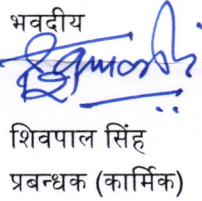 भवदीय
शिवपाल सिंह
प्रबन्धक (कार्मिक)